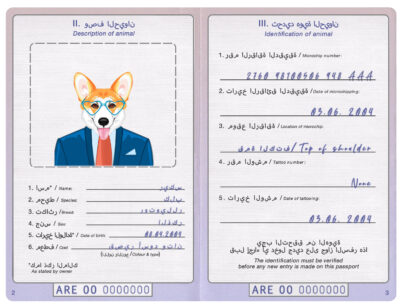 II. وصف الحيوان
Description of animal
1. اسم* / Name:
2. / Species:
3. / Breed:
4. جنس / Sex:
5. / Date of birth 08.09.2009
6. / Coat
(Colour & type)
As stated by owner
2
ARE 00 0000000
III. تحديد هوية الحيوان
Identification of animal
1. رقم الرقاقة الدقيقة / Microchip number:
2. تاريخ الرقائق الدقيقة / Date of microchipping:
03.06. 2009
3. موقع الرقاقة / Location of microchip:
قمة الكتف / Top of shoulder
4. رقم الوشم / Tattoo number:
None
5. تاريخ الوشم / Date of tattooing:
03.06. 2009
يجب التحقق من الهوية
قبل إجراء أي دخول جديد على جواز السفر هذا
The identification must be verified
before any new entry is made on this passport
ARE 00 0000000
3